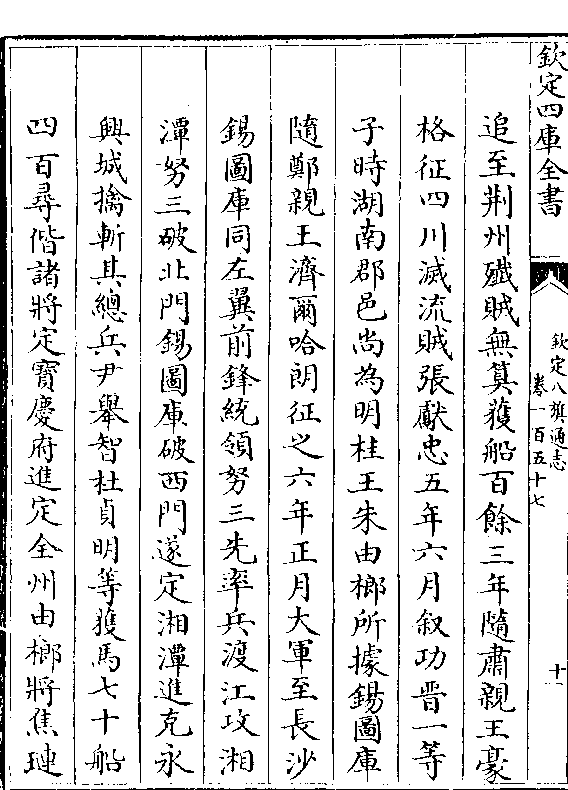 欽定四庫全書
欽定八旗通志
卷一百五十七
十一
追至荆州殲賊無筭獲船百餘三年隨肅親王豪
格征四川滅流賊張獻忠五年六月叙功晋一等
子時湖南郡邑尚為明桂王朱由榔所據錫圖庫
隨鄭親王濟爾哈朗征之六年正月大軍至長沙
錫圖庫同左翼前鋒統領努三先率兵渡江攻湘
潭努三破北門錫圖庫破西門遂定湘潭進克永
興城擒斬其總兵尹舉智杜貞明等獲馬七十船
四百尋偕諸將定寳慶府進定全州由榔將焦璉